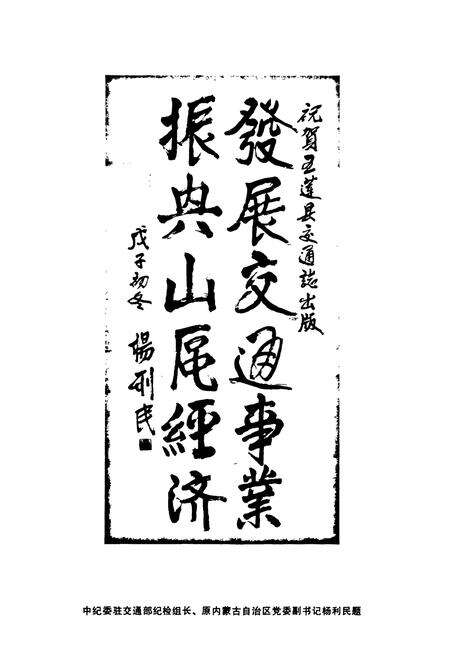 祝賀五蓮县交通誌出版
發展交通事業
振興山區經济
戊子初冬 楊利民
中纪委驻交通部纪检组长、原内蒙古自治区党委副书记杨利民题